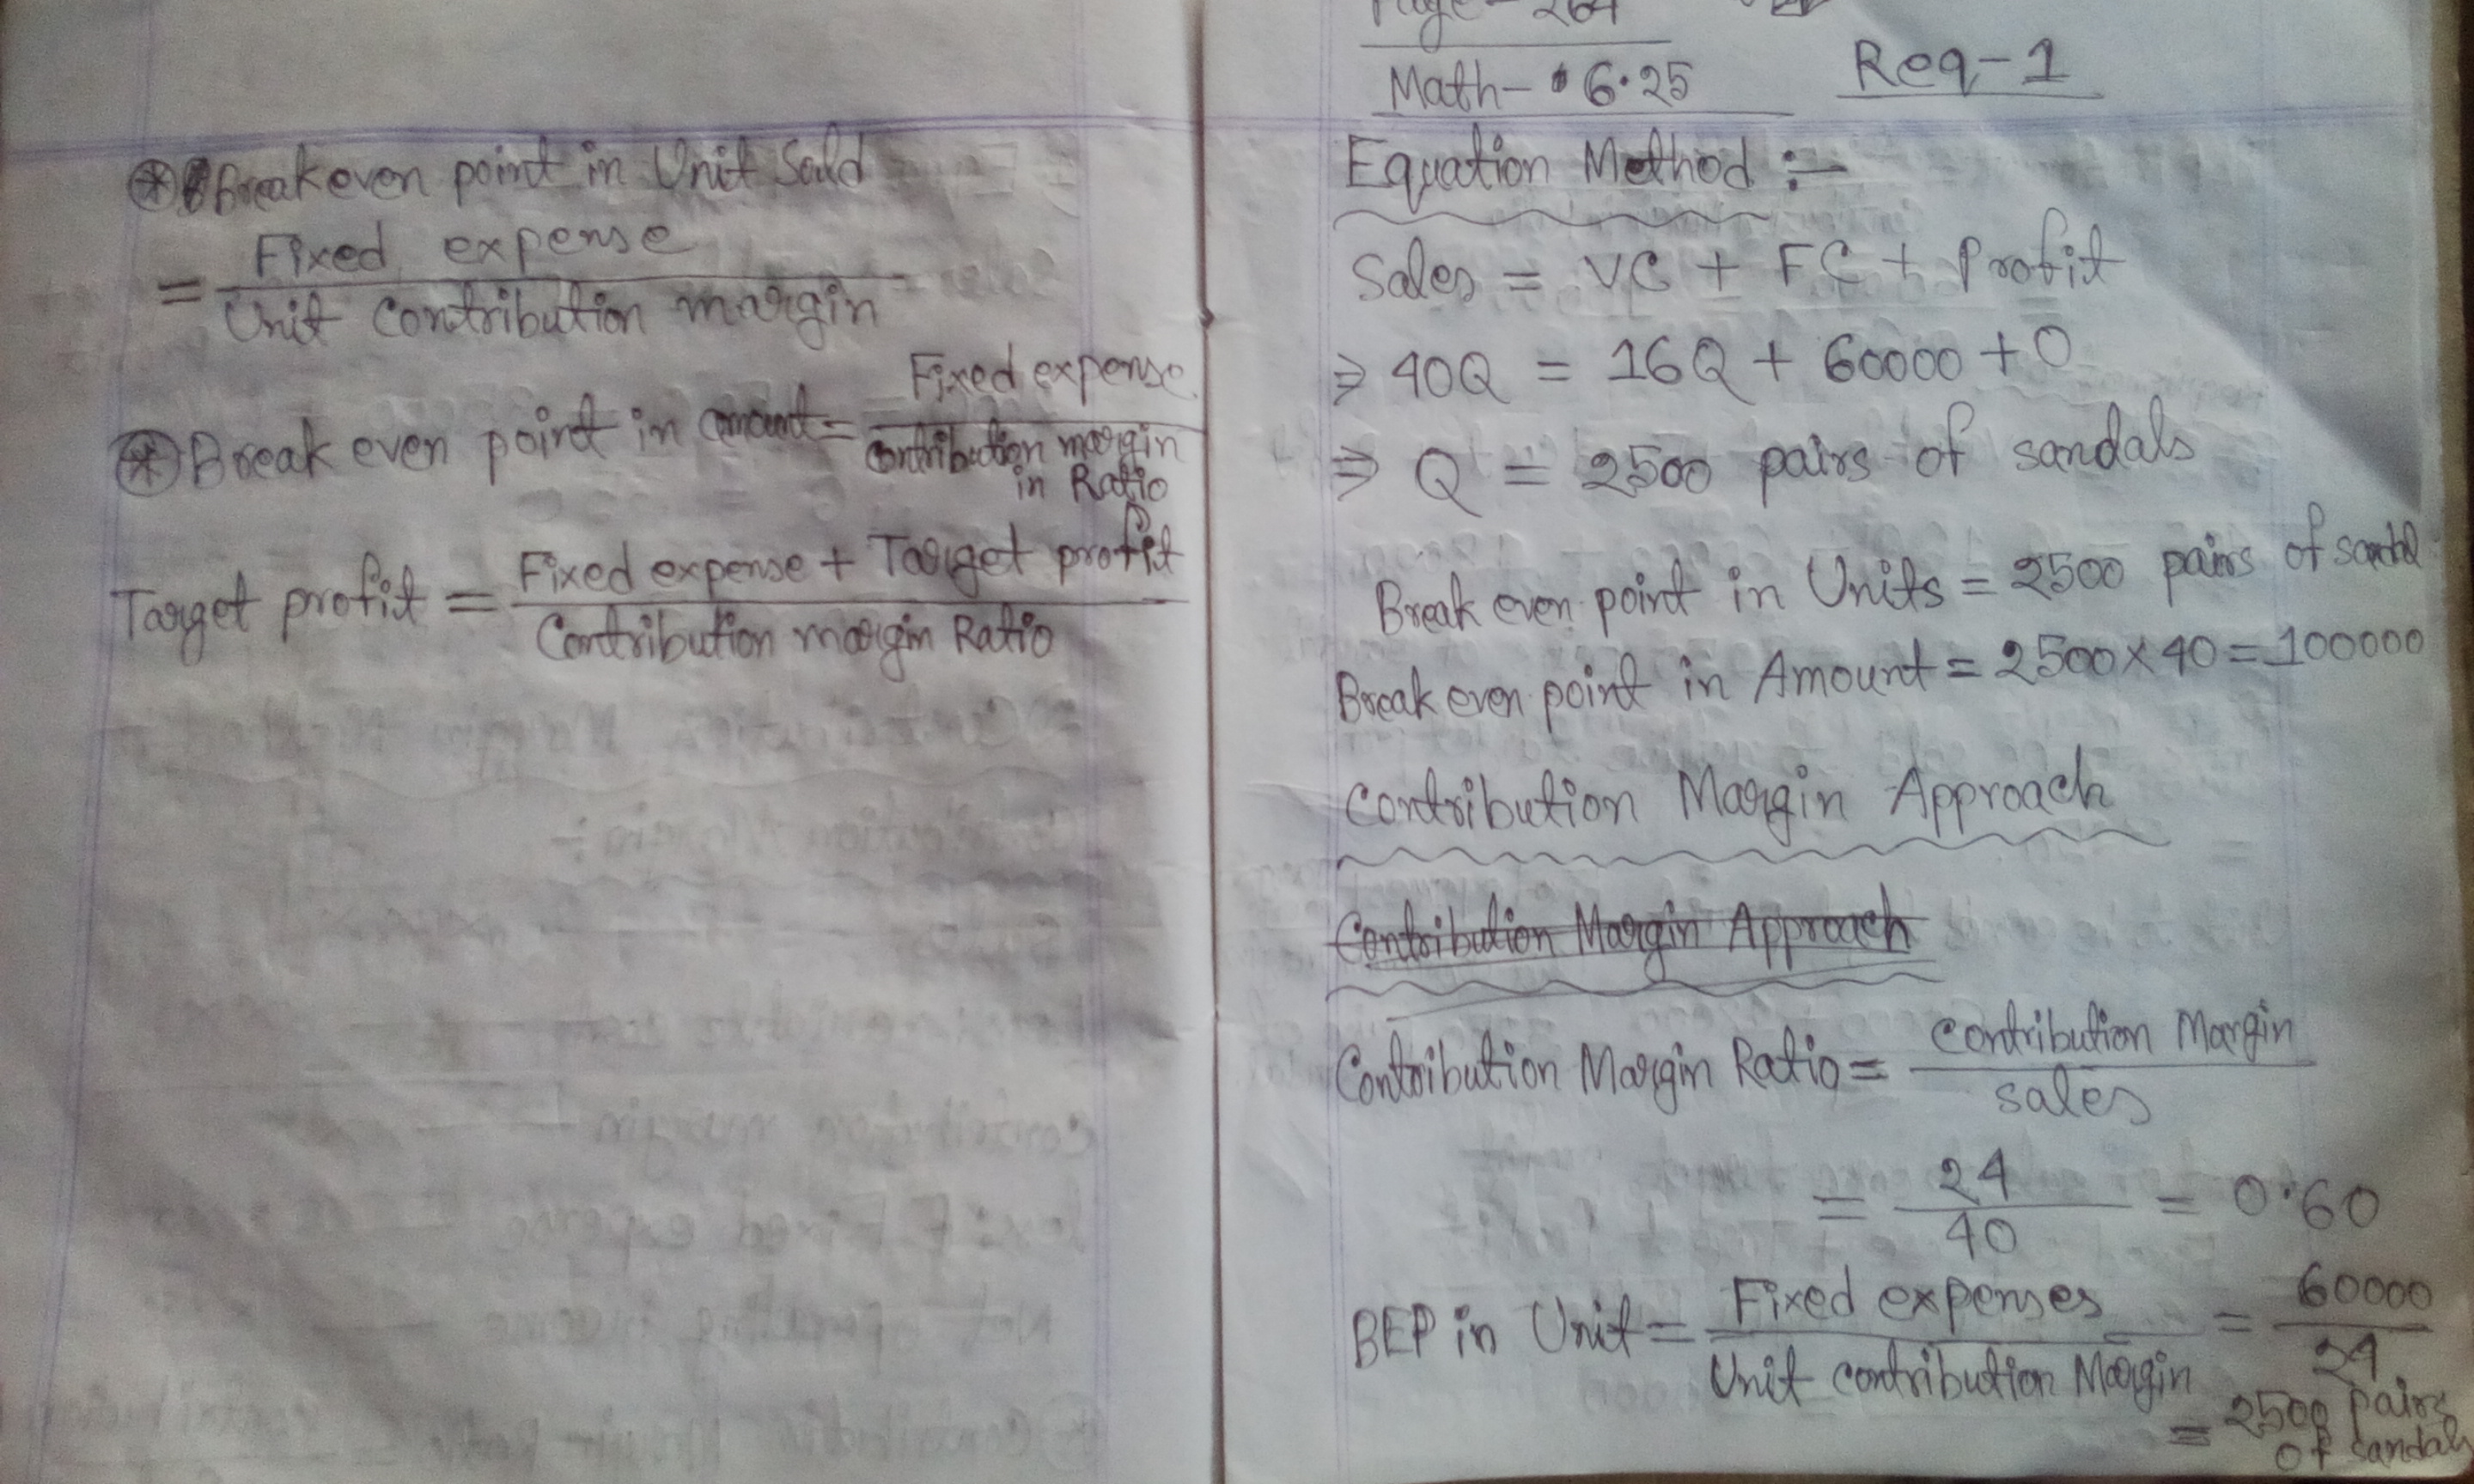 ⊛ Break even point in Unit Sould
= Fixed expense / Unit Contribution margin
⊛ Break even point in amount = Fixed expense / Contribution margin in Ratio
Target profit = Fixed expense + Target profit / Contribution margin Ratio
Page - 264
Math- 6.25 Req-1
Equation Method :-
Sales = VC + FC + Profit
⇒ 40Q = 16Q + 60000 + 0
⇒ Q = 2500 pairs of sandals
Break even point in Units = 2500 pairs of sandal
Break even point in Amount = 2500×40 = 100000
Contribution Margin Approach
Contribution Margin Approach
Contribution Margin Ratio = Contribution Margin / sales
= 24 / 40 = 0.60
BEP in Unit = Fixed expenses / Unit contribution Margin = 60000 / 24
= 2500 pairs
of sandals